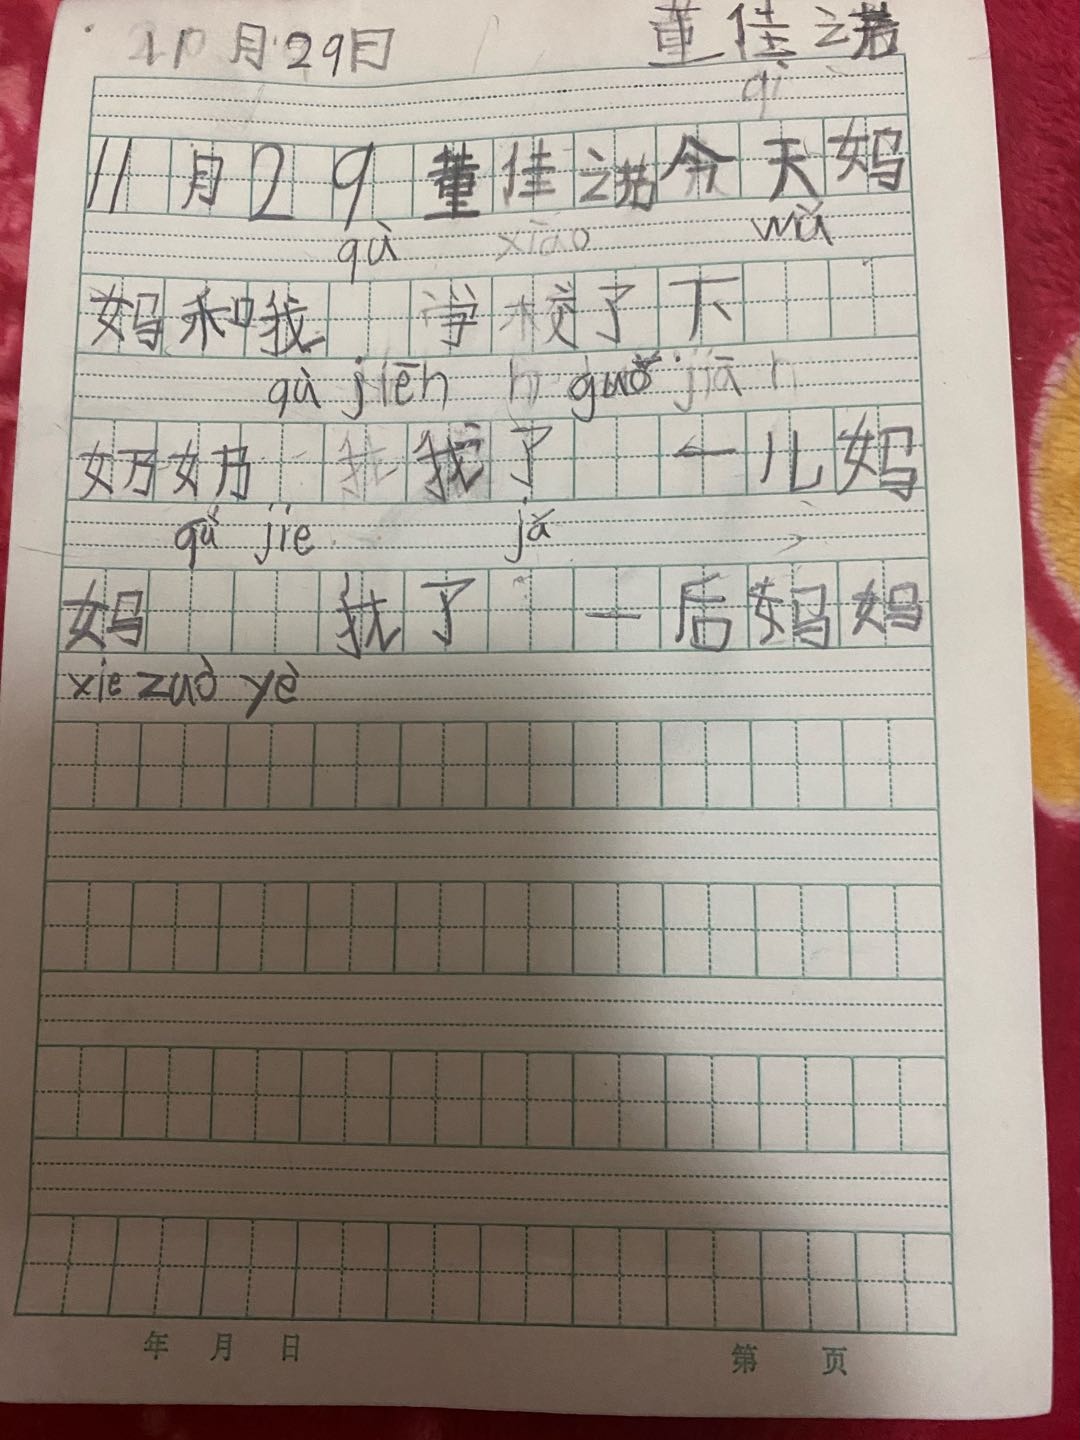 月29日 董佳诺
qi
11月29董佳诺今天妈
qù xiāo wǔ
妈和我 学校了下
qù jiēn guǒ jiā
奶奶 我了 一儿妈
qǔ jie jǎ
妈 我了 一后妈妈
xie zuò yè
年 月 日 第 页